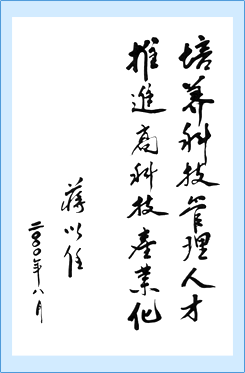 培养科技管理人才
推進高科技產業化
蒋以任
二〇〇一年八月